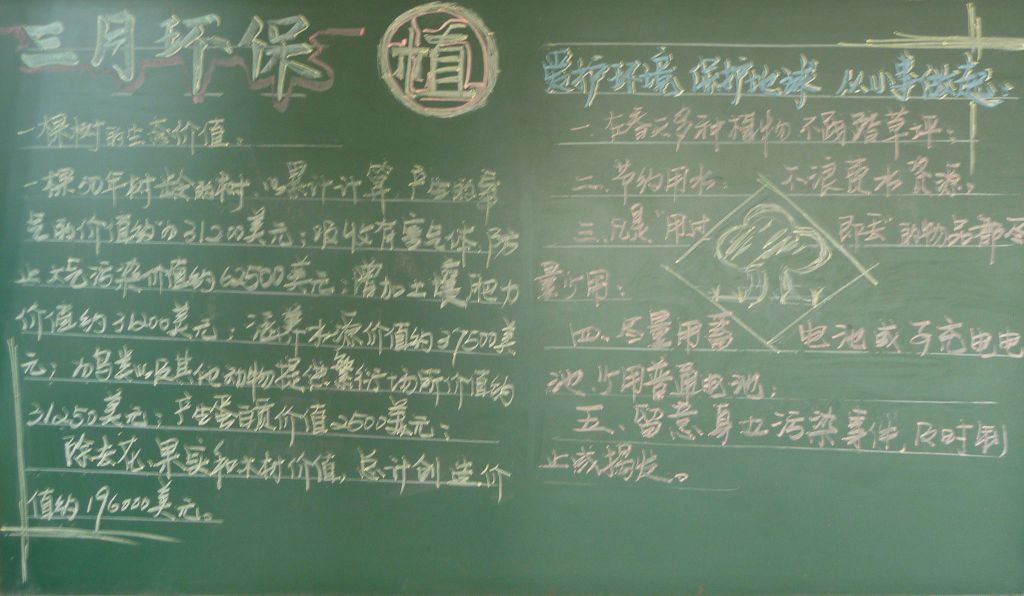 三月环保
植
一棵树的生态价值:
一棵50年树龄的树 以累计计算,产生的氧
气的价值约31200美元;吸收有害气体,防
止大气污染价值约62500美元;增加土壤肥力
价值约31200美元;涵养水源价值约37500美
元;为鸟类以及其他动物提供繁衍场所价值约
31250美元;产生蛋白质价值2500美元;
除去花、果实和木材价值,总计创造价
值约196000美元。
爱护环境 保护地球 从小事做起:
一、在春天多种植物 不踏踏草坪;
二、节约用水, 不浪费水资源;
三、凡是"用过 即丢"的物品都尽
量少用;
四、尽量用蓄 电池或可充电电
池 少用普通电池;
五、留意身边污染事件 及时制
止或揭发。